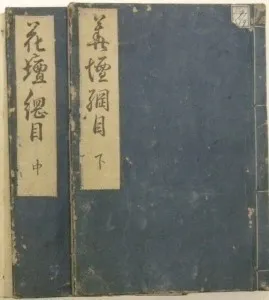 花壇綱目 下
花壇綱目 中